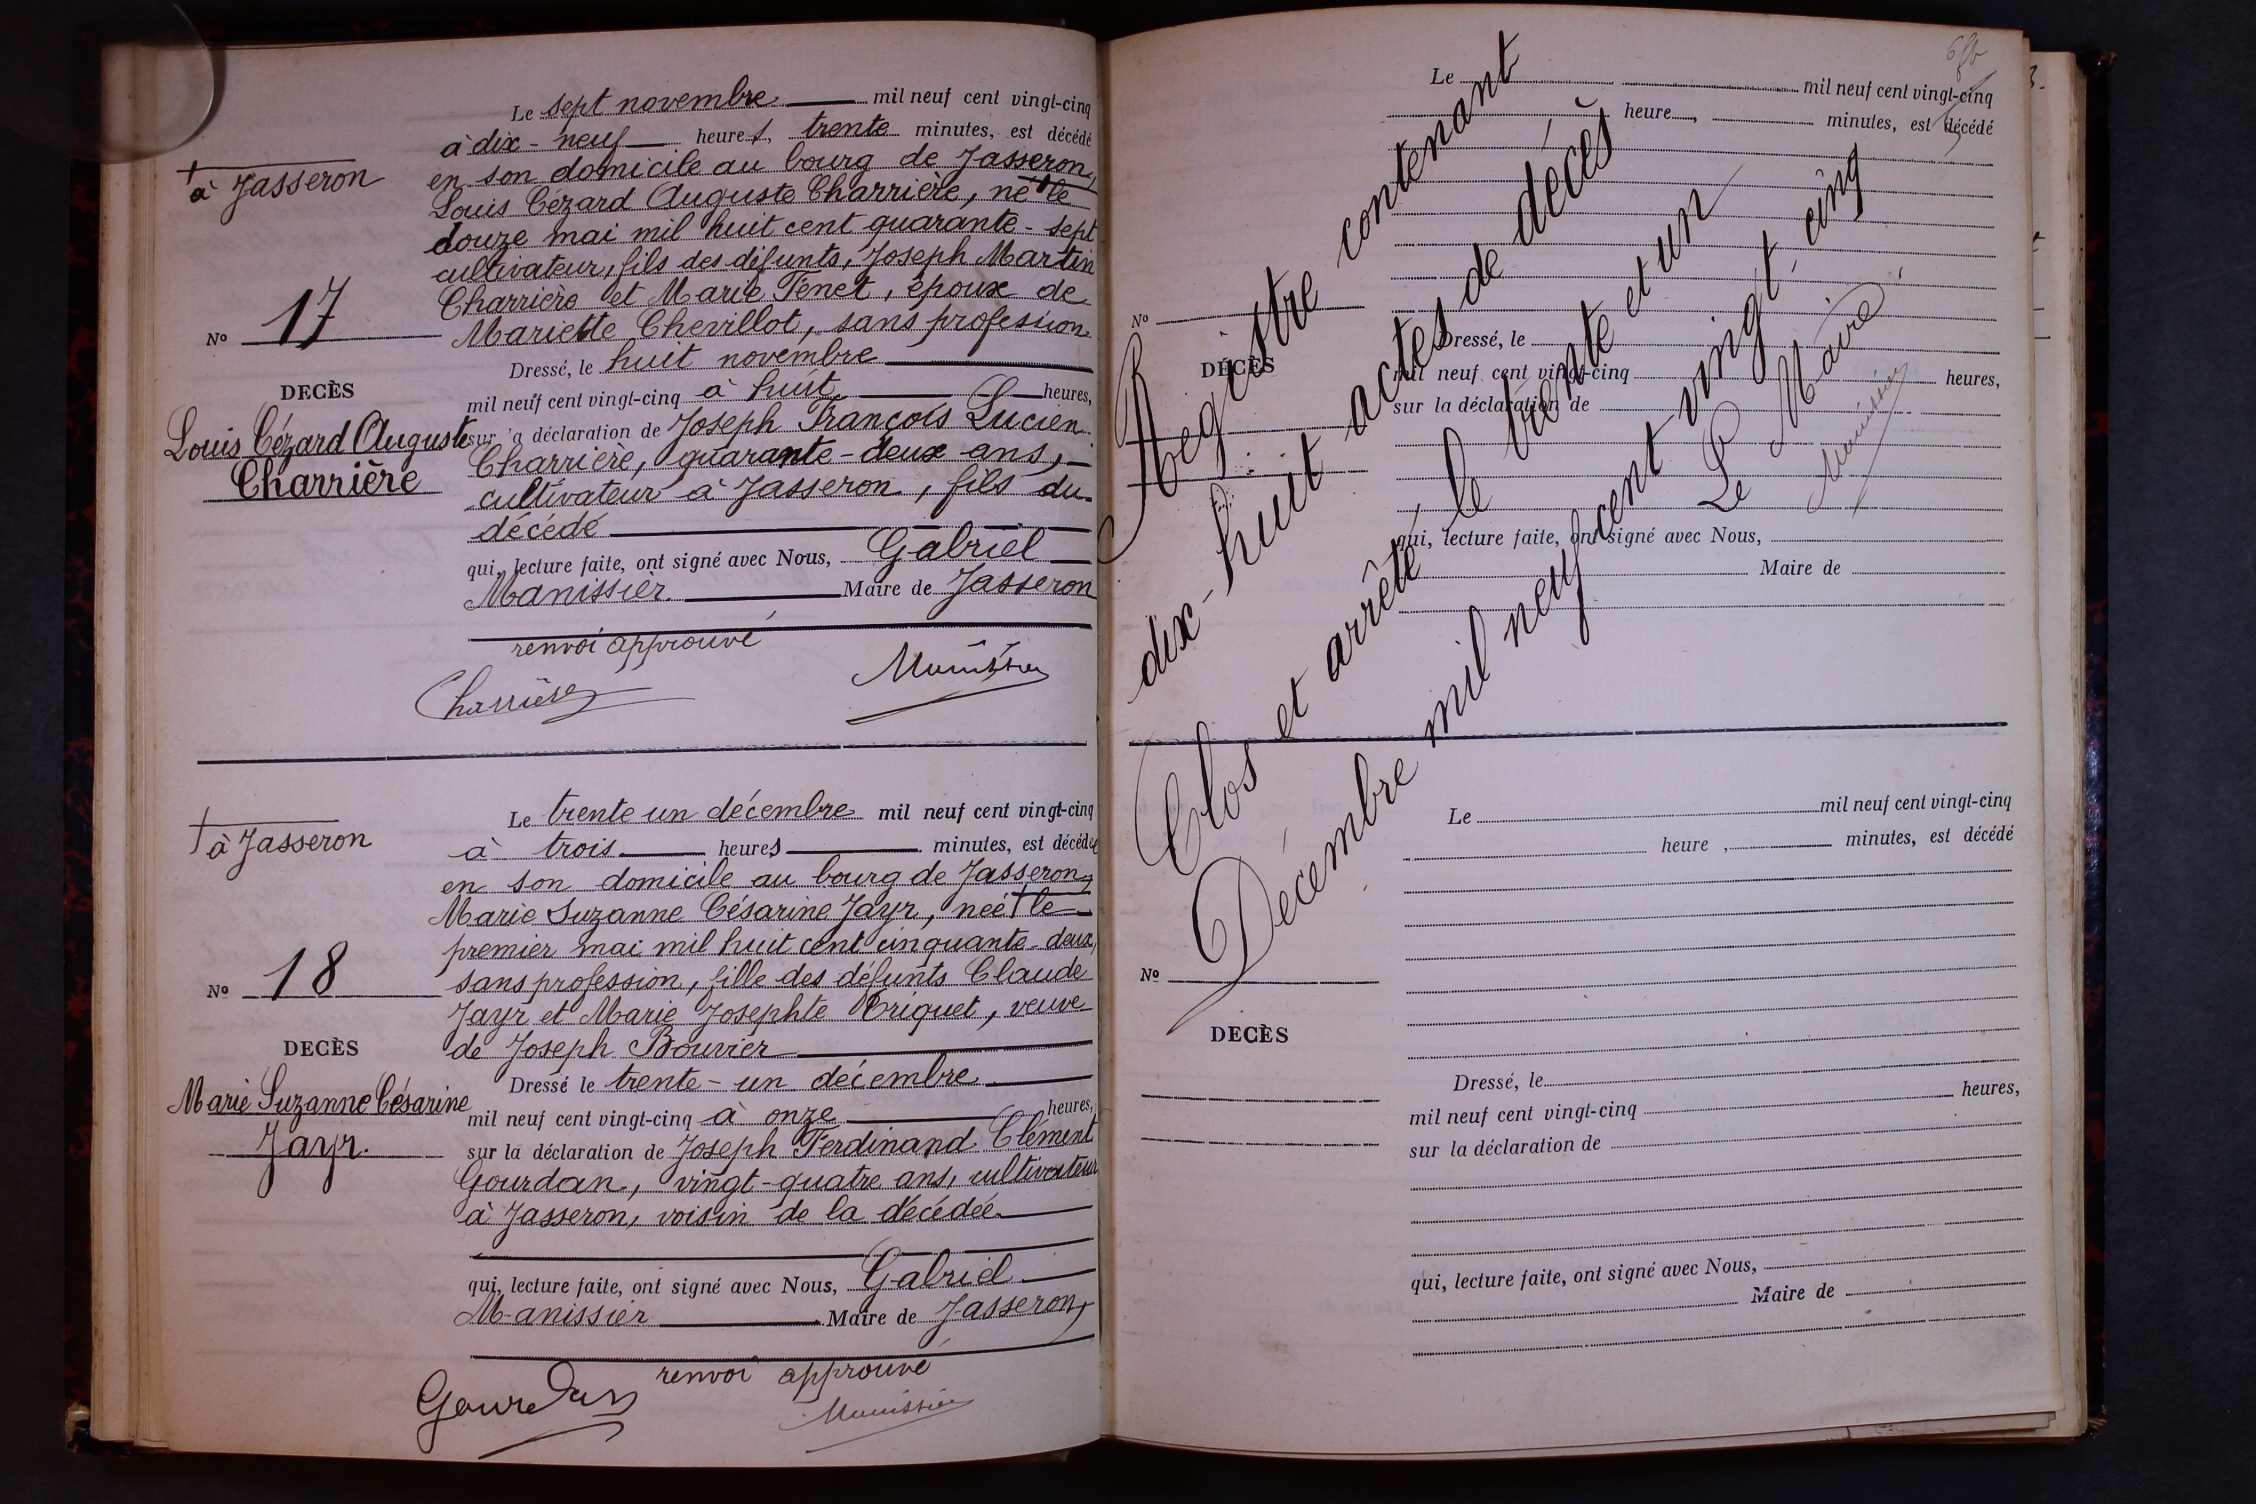 Le sept novembre mil neuf cent vingt-cinq
à dix-neuf heures, trente minutes, est décédé
en son domicile au bourg de Jasseron,
Louis Cézard Auguste Charrière, né † le
douze mai mil huit cent quarante-sept
cultivateur, fils des défunts, Joseph Martin
Charrière et Marie Tenet, époux de
Mariette Chevillot, sans profession
Dressé, le huit novembre
mil neuf cent vingt-cinq à huit heures,
sur la déclaration de Joseph François Lucien
Charrière, quarante-deux ans,
cultivateur à Jasseron, fils du
décédé
qui, lecture faite, ont signé avec Nous, Gabriel
Manissier Maire de Jasseron
renvoi approuvé
Charrière Manissier
† à Jasseron
No 17
DECÈS
Louis Cézard Auguste
Charrière
Le trente un décembre mil neuf cent vingt-cinq
à trois heures minutes, est décédée
en son domicile au bourg de Jasseron,
Marie Suzanne Césarine Jayr, née † le
premier mai mil huit cent cinquante-deux,
sans profession, fille des défunts Claude
Jayr et Marie Josephte Briquet, veuve
de Joseph Bouvier
Dressé le trente-un décembre
mil neuf cent vingt-cinq à onze heures,
sur la déclaration de Joseph Ferdinand Clément
Gourdan, vingt-quatre ans, cultivateur
à Jasseron, voisin de la décédée
qui, lecture faite, ont signé avec Nous, Gabriel
Manissier Maire de Jasseron,
renvoi approuvé
Gourdan Manissier
† à Jasseron
No 18
DECÈS
Marie Suzanne Césarine
Jayr.
Le mil neuf cent vingt-cinq
heure , minutes, est décédé
No
DÉCÈS
Dressé, le
mil neuf cent vingt-cinq heures,
sur la déclaration de
qui, lecture faite, ont signé avec Nous,
Maire de
Registre contenant
dix-huit actes de décès
Clos et arrêté le trente et un
Décembre mil neuf cent vingt-cinq
Le Maire
Manissier
Le mil neuf cent vingt-cinq
heure , minutes, est décédé
No
DECÈS
Dressé, le
mil neuf cent vingt-cinq heures,
sur la déclaration de
qui, lecture faite, ont signé avec Nous,
Maire de